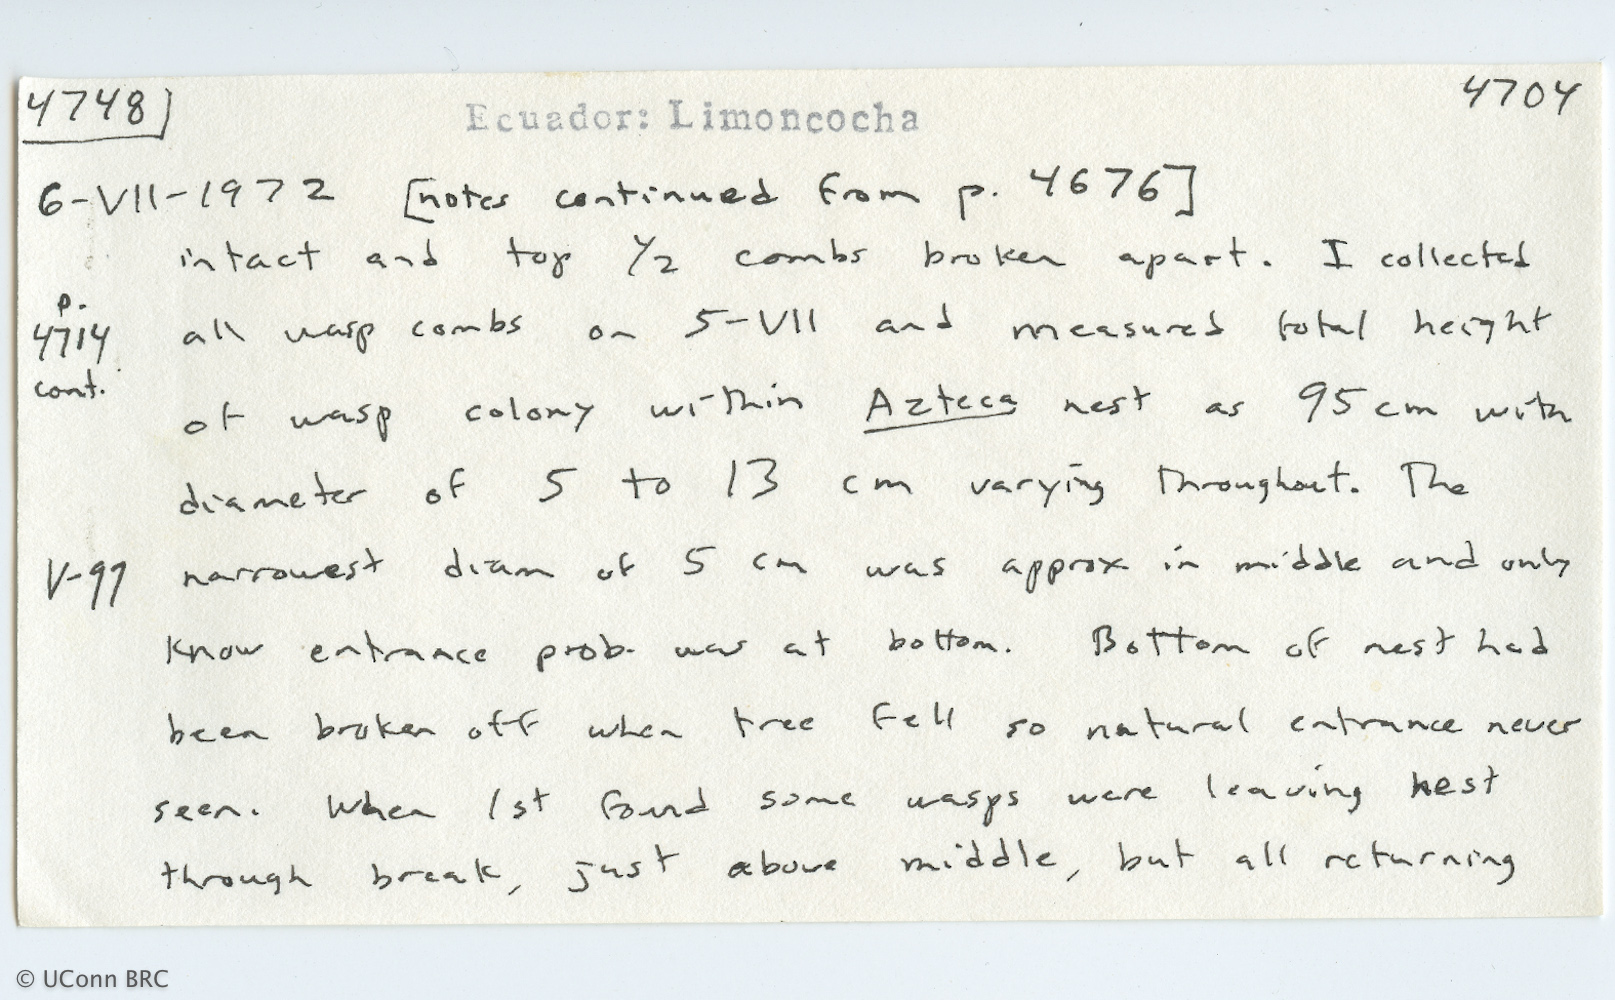 4748] Ecuador: Limoncocha 4704
6-VII-1972 [notes continued from p. 4676]
intact and top 1/2 combs broken apart. I collected
p. 4714 cont. all wasp combs on 5-VII and measured total height
of wasp colony within Azteca nest as 95 cm with
diameter of 5 to 13 cm varying throughout. The
V-99 narrowest diam of 5 cm was approx in middle and only
know entrance prob. was at bottom. Bottom of nest had
been broken off when tree fell so natural entrance never
seen. When 1st found some wasps were leaving nest
through break, just above middle, but all returning
© UConn BRC